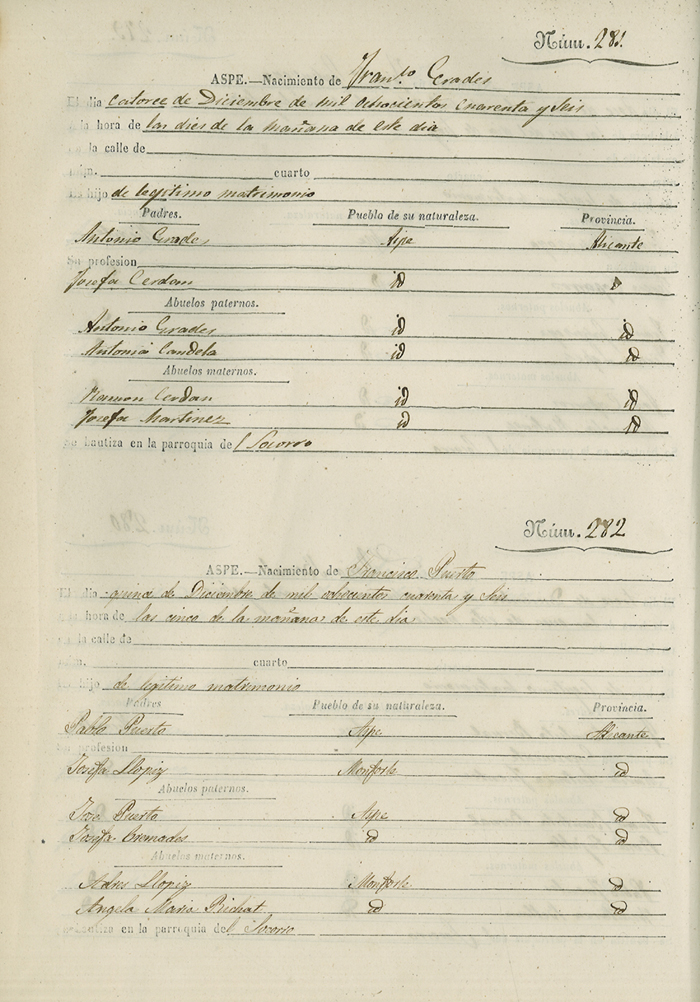 Núm. 281
ASPE.—Nacimiento de Franco Grades
El dia catorce de Diciembre de mil ochocientos cuarenta y Seis
a la hora de las dies de la mañana de este dia
la calle de
cuarto
hijo de legitimo matrimonio
Padres. Pueblo de su naturaleza. Provincia.
Antonio Grades Aspe Alicante
Su profesion
Josefa Cerdan id
Abuelos paternos.
Antonio Grades id id
Antonia Candela id id
Abuelos maternos.
Ramon Cerdan id id
Josefa Martinez id id
Se bautiza en la parroquia del Socorro
Núm. 282
ASPE.—Nacimiento de Francisco Puerto
El dia quince de Diciembre de mil ochocientos cuarenta y Seis
hora de las cinco de la mañana de este dia
la calle de
cuarto
hijo de legitimo matrimonio
Padres Pueblo de su naturaleza. Provincia.
Pablo Puerto Aspe Alicante
profesion
Josefa Llopiz Monforte id
Abuelos paternos.
Jose Puerto Aspe id
Josefa Cremades id id
Abuelos maternos.
Adres Llopiz Monforte id
Angela Maria id id
bautiza en la parroquia del Socorro